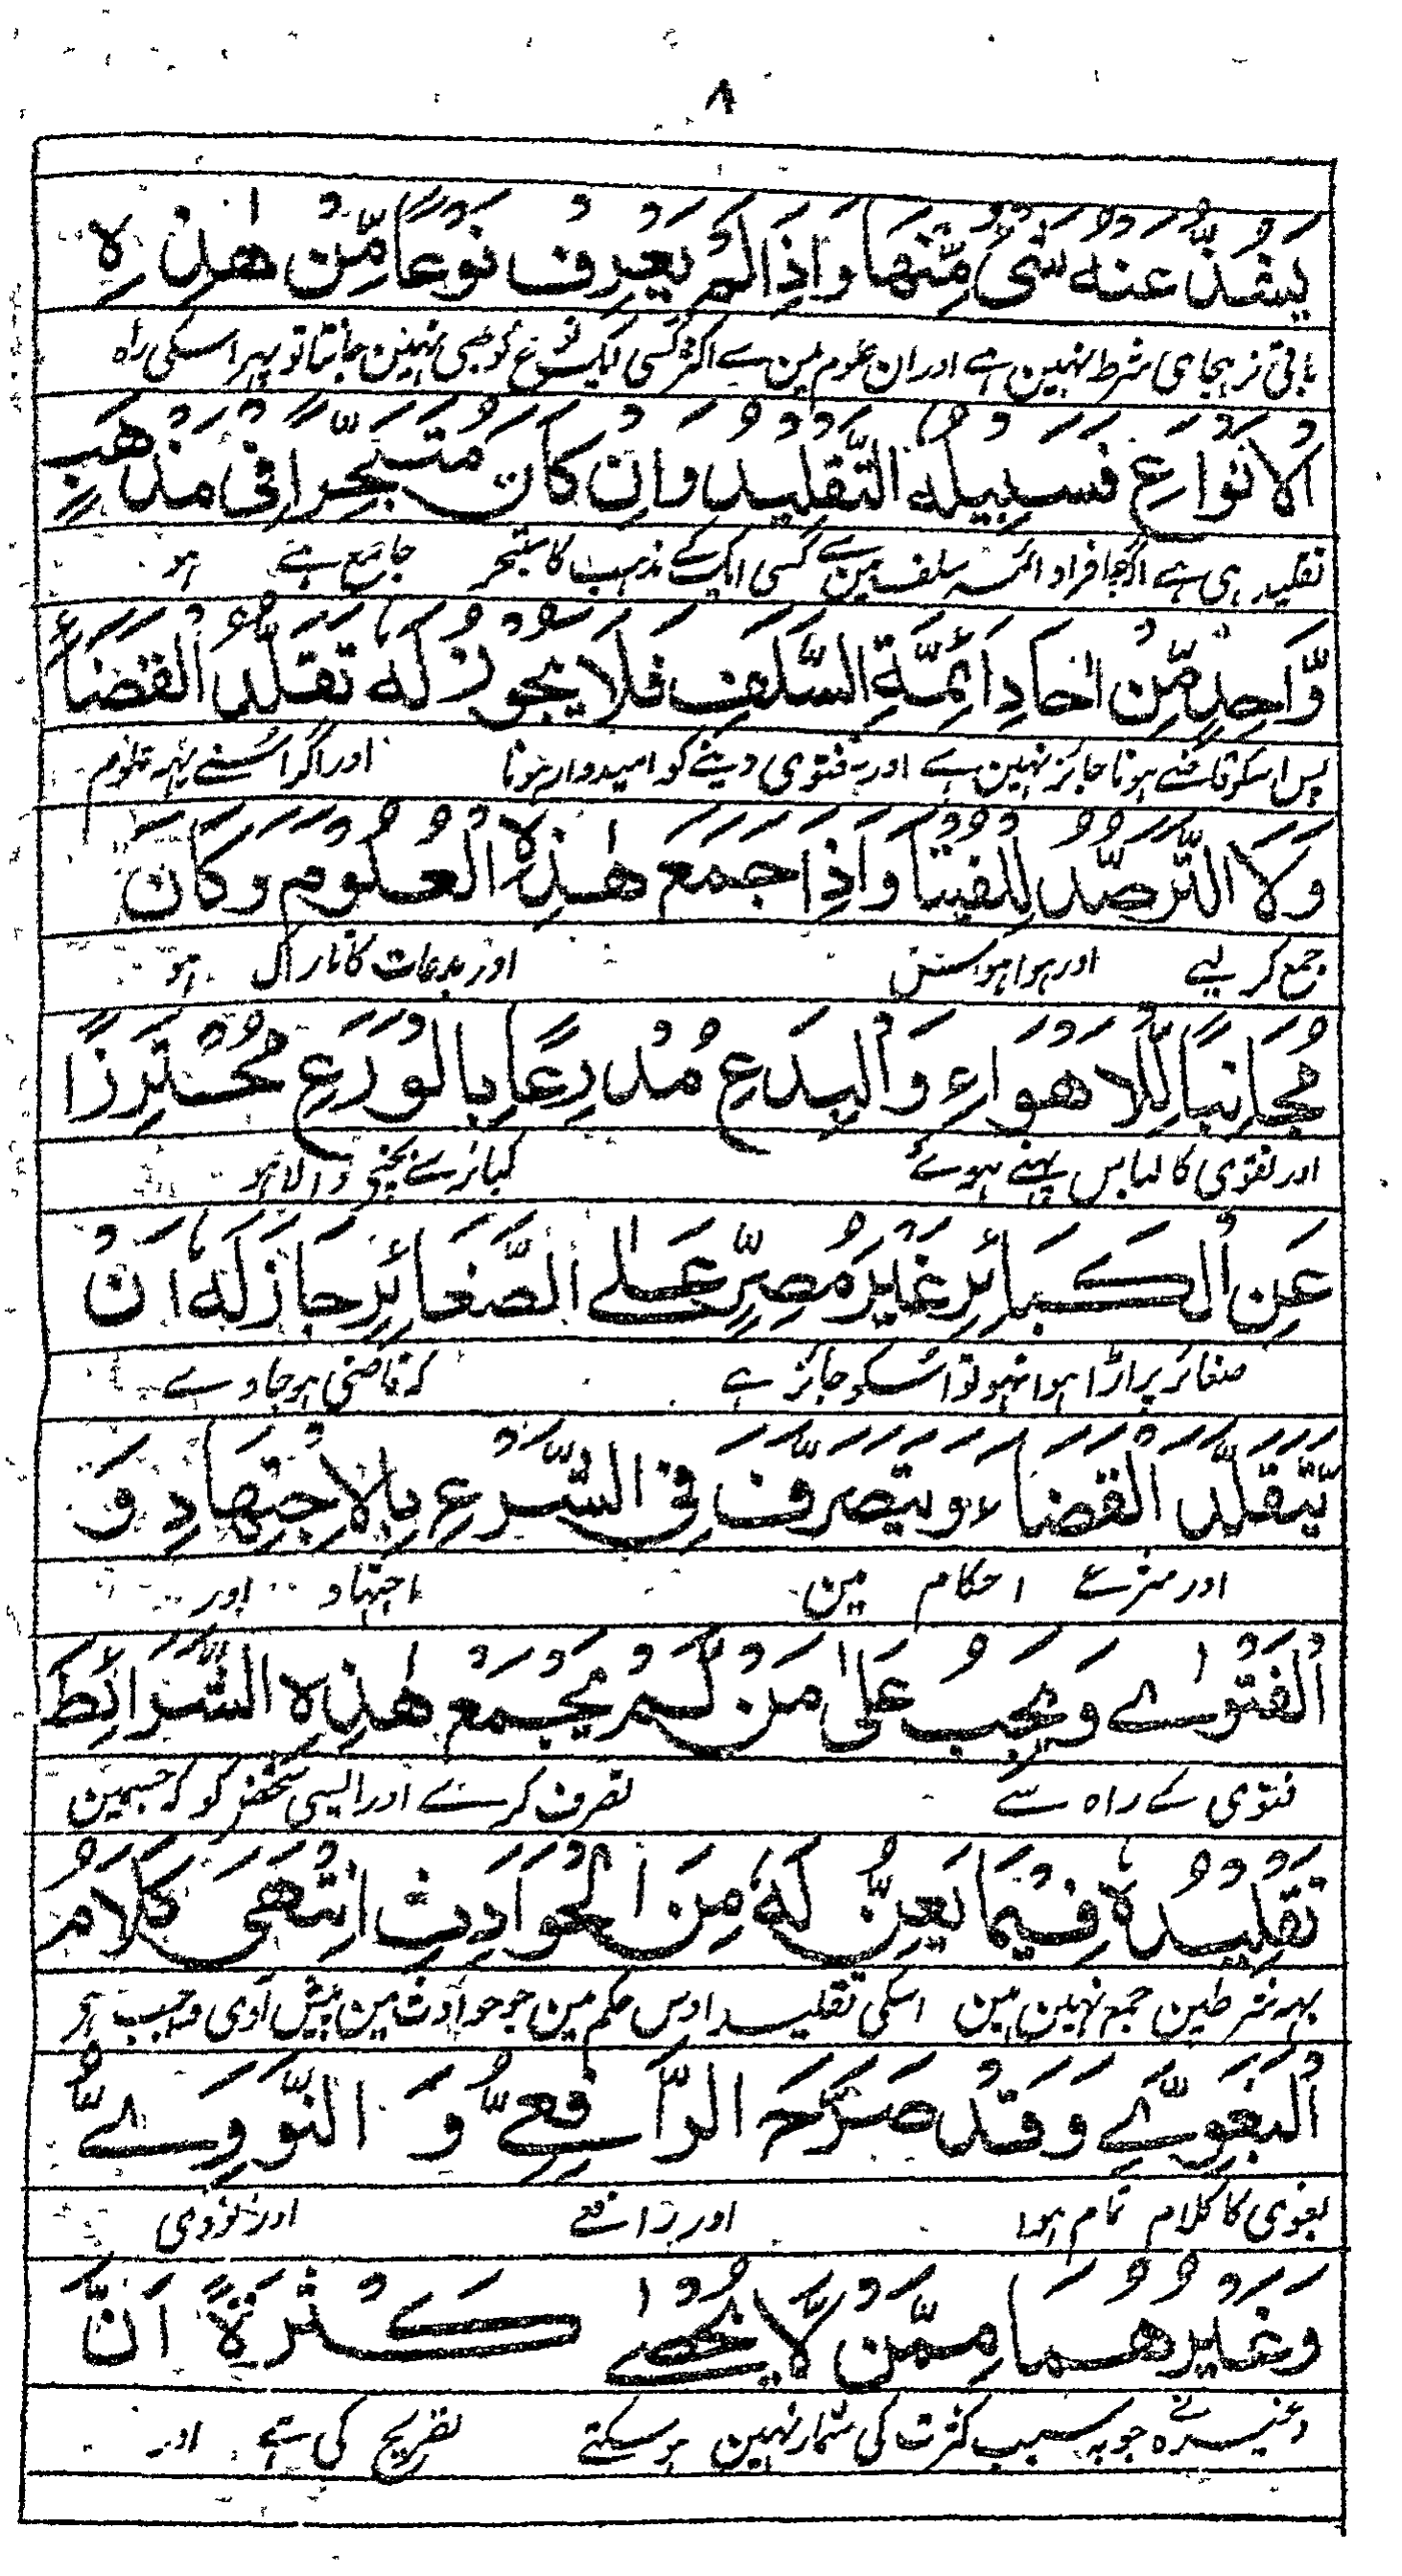 ٨
يَنْفُذَ عَنْهُ شَیْءٌ مِّنْهَا وَاِذَا لَمْ يَعْرِفْ نَوْعًا مِّنْ هٰذِهِ
باقی نرہجای شرط نہین ہے اور ان علوم مین سے اکثر کسی ایک نوع کو بھی نہین جانتا تو پہر اسکی راہ
الْاَنْوَاعِ فَسَبِيْلُهُ التَّقْلِيْدُ وَاِنْ كَانَ مُتَبَحِّرًا فِیْ مَذْهَبِ
تقلید ہی ہے اگرچہ افراد ائمہ سلف مین سے کسی ایک کے مذہب کا متبحر جامع ہے ہو
وَّاحِدٍ مِّنْ اٰحَادِ اَئِمَّةِ السَّلَفِ فَلَا يَجُوْزُ لَهٗ تَقَلُّدُ الْقَضَاءِ
پس اسکو قاضے ہونا جائز نہین ہے اور نہ فتوی دینے کو امیدوار ہونا اور اگر اسنے یہہ علوم
وَلَا التَّرَصُّدُ لِلْفُتْيَا وَاِذَا جَمَعَ هٰذِهِ الْعُلُوْمَ وَكَانَ
جمع کر لیے اور ہوا ہوسسے اور بدعات کا تارک ہو
مُجَانِبًا لِّلْاَهْوَاءِ وَالْبِدَعِ مُدَّرِعًا بِالْوَرَعِ مُحْتَرِزًا
اور تقوی کا لباس پہنے ہوئے کبائر سے بچنے والا ہو
عَنِ الْكَبَائِرِ غَيْرَ مُصِرٍّ عَلَى الصَّغَائِرِ جَازَ لَهٗ اَنْ
صغائر پر اڑا ہوا نہو تو اسکو جائز ہے کہ قاضی ہو جاوے
يَّتَقَلَّدَ الْقَضَاءَ وَيَتَصَرَّفَ فِی الشَّرْعِ بِالْاِجْتِهَادِ وَ
اور شرع احکام مین اجتہاد اور
الْفَتْوٰے وَيَجِبُ عَلٰى مَنْ لَّمْ يَجْمَعْ هٰذِهِ الشَّرَائِطَ
فتوی کے راہ سے تصرف کرے اور ایسی شخص کو کہ جسمین
تَقْلِيْدُهٗ فِيْمَا يَعِنُّ لَهٗ مِنَ الْحَوَادِثِ اِنْتَهٰى كَلَامُ
یہہ شرطین جمع نہین ہین اسکی تقلید اوس حکم مین جو حوادث مین پیش آوی واجب ہے
الْبَغَوِيِّ وَقَدْ صَرَّحَ الرَّافِعِيُّ وَ النَّوَوِيُّ
بغوی کا کلام تمام ہوا اور رافعے اور نووی
وَغَيْرُهُمَا مِمَّنْ لَّا يُحْصٰے كَثْرَةً اَنَّ
وغیرہ نے جو بہ سبب کثرت کی شمار نہین ہو سکتے تصریح کی ہے اور